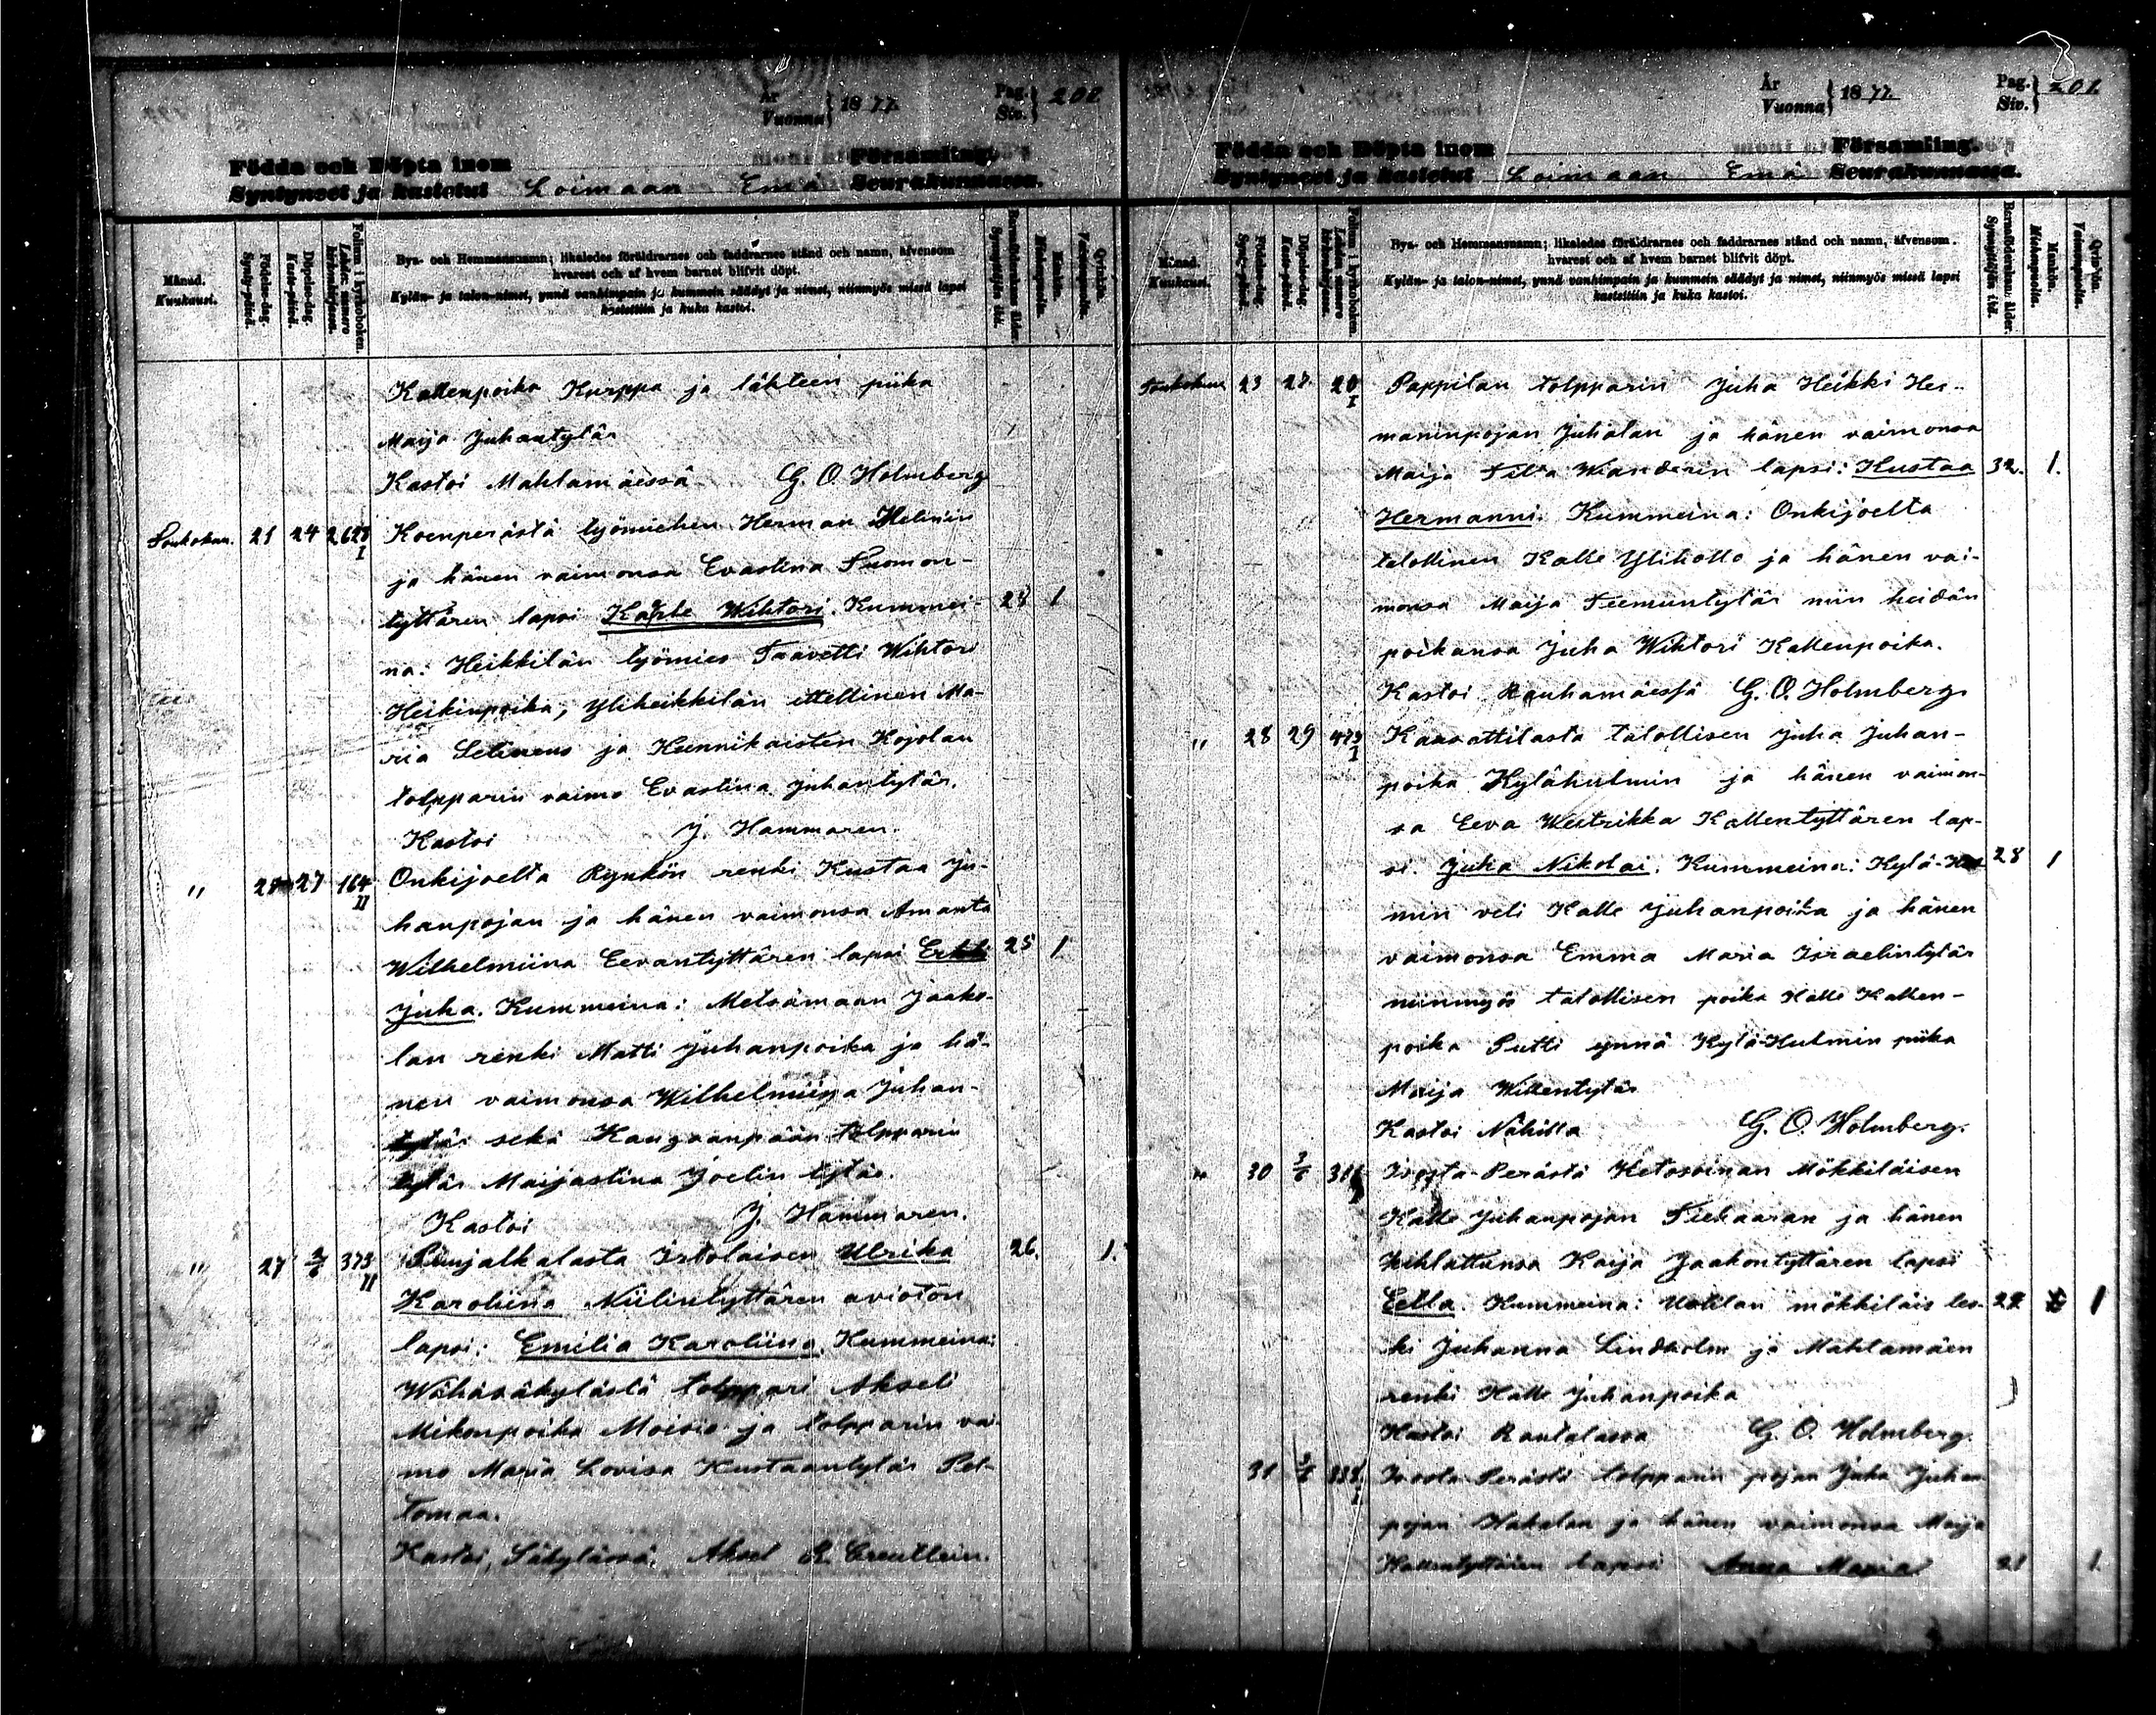 År
Vuonna} 1877.
Pag.
Siv.} 200
Födda och Döpta inom Församling.
Syntyneet ja kastetut Loimaan Emä Seurakunnassa.
Månad. Kuukausi.
Födelse-dag. Synty-päivä.
Döpelse-dag. Kaste-päivä.
Folium i kyrkoboken. Lehden numero kirkonkirjassa.
Bya- och Hemmansnamn; likaledes föräldrarnes och faddrarnes stånd och namn, äfvensom
hvarest och af hvem barnet blifvit döpt.
Kylän- ja talon-nimet, ynnä vanhimpain ja kummein säädyt ja nimet, niinmyös missä lapsi
kastettiin ja kuka kastoi.
Barnaföderskans ålder. Synnyttäjän ikä.
Mankön. Miehenpuolia.
Qvinkön. Vaimonpuolia.
Kallenpoika Kurppa ja lähteen piika
Maija Juhantytär
Kastoi Mahlamäessä G. O. Holmberg
Toukokuu. 21 24 I Koenperästä työmiehen Herman Helinin
ja hänen vaimonsa Evastina Suomon-
tyttären lapsi Kalle Wihtori. Kummei- 28 1
na: Heikkilän työmies Taavetti Wihtori
Heikinpoika, Yliheikkilän itellinen Ma-
ria Selinens ja Hennikaisten Kojolan
tolpparin vaimo Evastina Juhantytär.
Kastoi J. Hammaren.
" 27 164 II Onkijoelta Rynkön renki Kustaa Ju-
hanpojan ja hänen vaimonsa Amanta
Wilhelmiina Eevantyttären lapsi Erkki 25 1
Juha. Kummeina: Metsämaan Jaako-
lan renki Matti Juhanpoika ja hä-
nen vaimonsa Wilhelmiina Juhan-
tytär sekä Kangaanpään tolpparin
tytär Maijastina Joelin tytär.
Kastoi J. Hammaren.
" 27 3/6 373 II Itsolaisen Ulrika 26. 1.
Karoliina Niilintyttären avioton
lapsi: Emilia Karoliina. Kummeina:
Wähäsäkylästä tolppari Akseli
Mikonpoika Moisio ja tolpparin vai-
mo Maria Lovisa Kustaantytär Pel-
tomaa.
Kastoi, Säkylässä, Aksel R. Creutlein.
År
Vuonna} 1877.
Pag.
Siv.} 201
Födda och Döpta inom Församling.
Syntyneet ja kastetut Loimaan Emä Seurakunnassa.
Månad. Kuukausi.
Födelse-dag. Synty-päivä.
Döpelse-dag. Kaste-päivä.
Folium i kyrkoboken. Lehden numero kirkonkirjassa.
Bya- och Hemmansnamn; likaledes föräldrarnes och faddrarnes stånd och namn, äfvensom
hvarest och af hvem barnet blifvit döpt.
Kylän- ja talon-nimet, ynnä vanhimpain ja kummein säädyt ja nimet, niinmyös missä lapsi
kastettiin ja kuka kastoi.
Barnaföderskans ålder. Synnyttäjän ikä.
Mankön. Miehenpuolia.
Qvinkön. Vaimonpuolia.
Toukokuu 23 27 20 I Pappilan tolpparin Juha Heikki Her-
maninpojan Juhalan ja hänen vaimonsa
Maija Wanderin lapsi: Kustaa 32. 1.
Hermanni. Kummeina: Onkijoelta
talollinen Kalle Ylikollo ja hänen vai-
monsa Maija Teemuntytär niin heidän
poikansa Juha Wihtori Kallenpoika.
Kastoi Rauhamäessä G. O. Holmberg.
" 28 29 473 I talollisen Juha Juhan-
poika Kylähulmin ja hänen vaimon-
sa Eeva Westrikka Kallentyttären lap-
si. Juha Nikolai. Kummeina: Kylä-Hul- 28 1
min veli Kalle Juhanpoika ja hänen
vaimonsa Emma Maria Israelintytär
niinmyös talollisen poika Kalle Kallen-
poika Putti ynnä Kylä-Hulmin piika
Maija Willentytär
Kastoi Nähillä G. O. Holmberg.
" 30 3/6 Isosta-Perästä Ketosoinan Mökkiläisen
Kalle Juhanpojan Tiekaaran ja hänen
kihlattunsa Kaija Jaakontyttären lapsi
Eella. Kummeina: Uotilan mökkiläis les- 22 1
ki Juhanna Lindholm ja Mahlamäen
renki Kalle Juhanpoika
Kastoi Rautalassa G. O. Holmberg.
31 3/6 Isosta-Perästä tolpparin pojan Juha Juhan
pojan Hakalan ja hänen vaimonsa Maija
Kallentyttären lapsi Anna Maria 21 1.